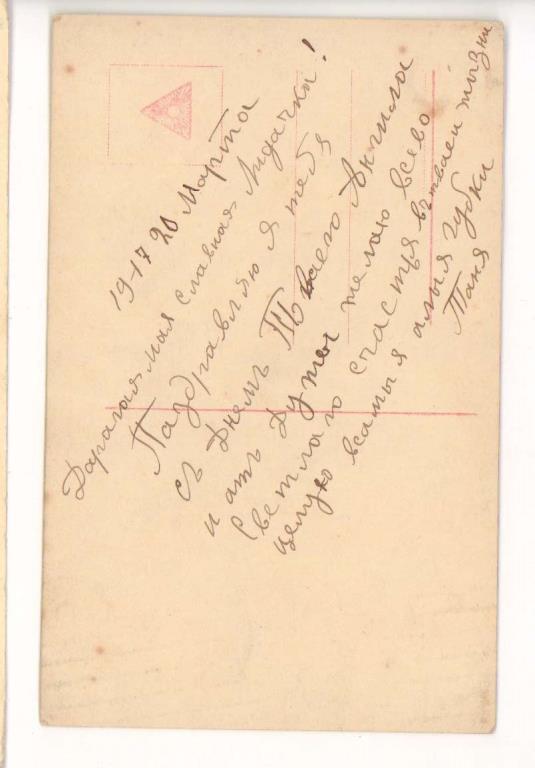 1917 20 Марта
Дарагая мая славная Лидачка!
Паздравляю я тебя
съ Днемъ Твоего Ангила
и атъ Души желаю всево
светлаго счастья въ тваей жизни
целую всамыя алыя губки
Таня